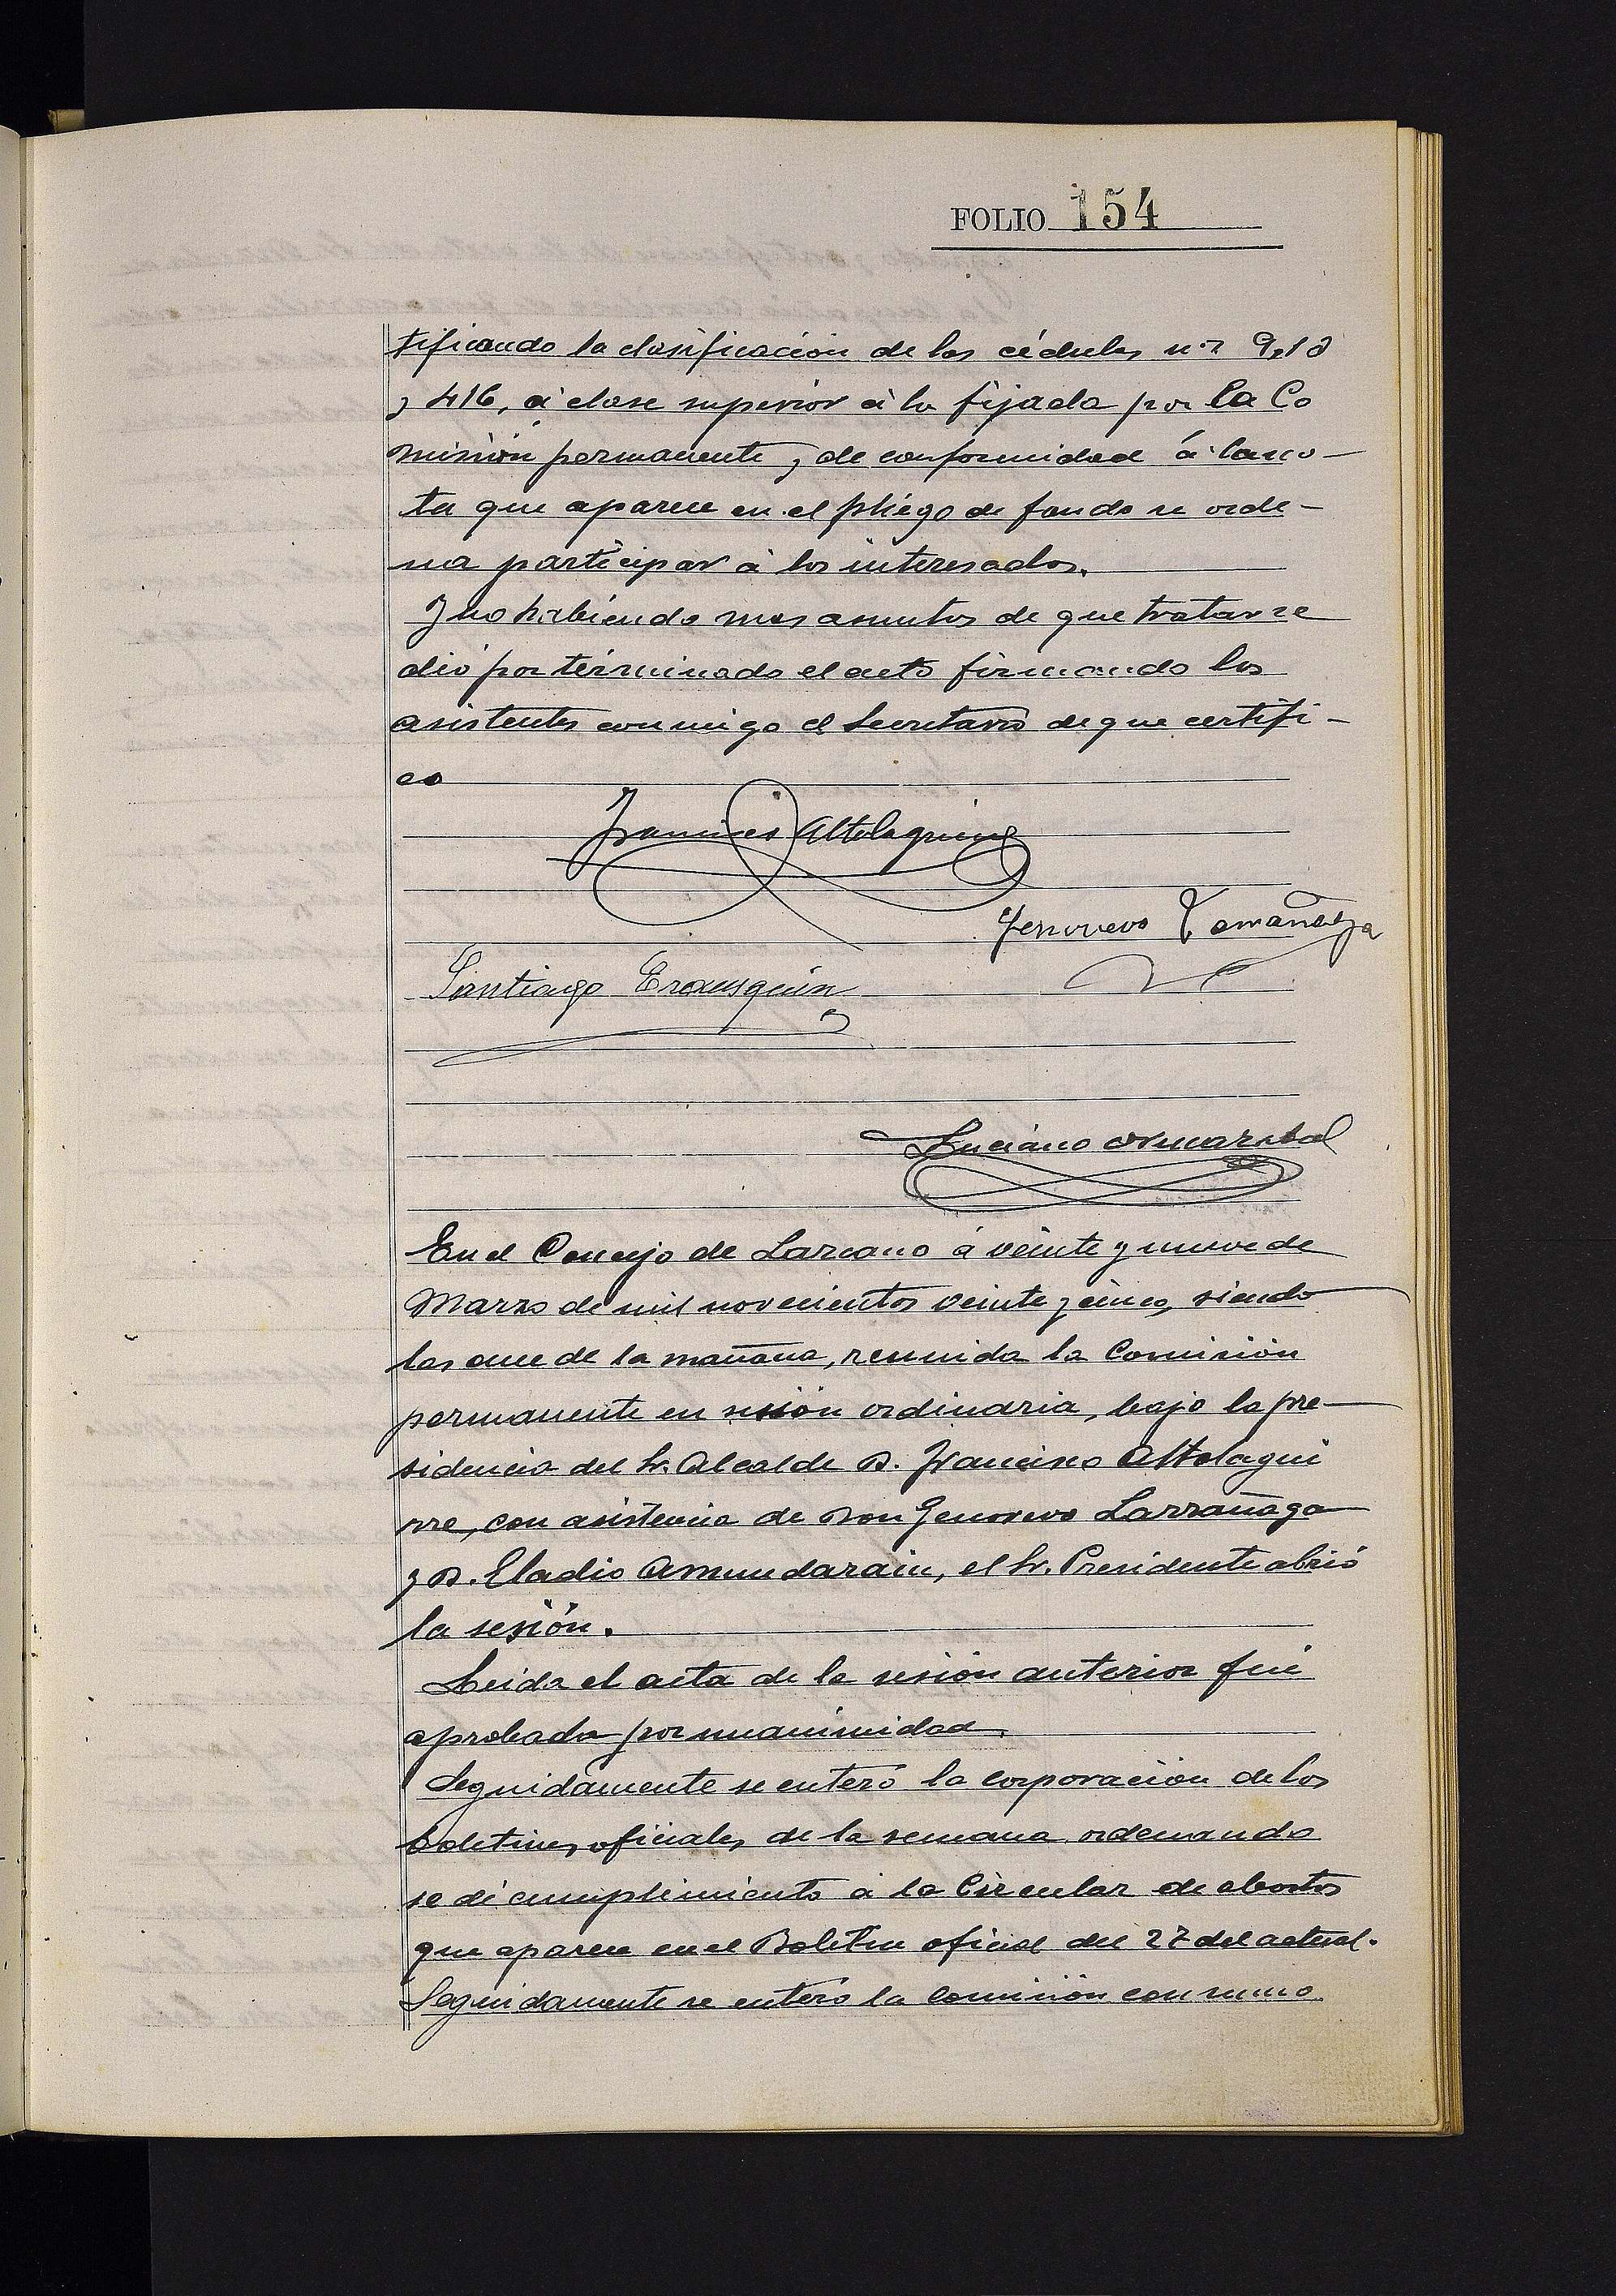 FOLIO 154
tificando la clasificación de las cédulas nos 9,18
y 416, á clase superior á la fijada por la Co
misión permanente y de conformidad á la no-
ta que aparece en el pliego de fondo se orde-
na participar á los interesados.
Y no habiendo mas asuntos de que tratar se
dió por terminado el acto firmando los
asistentes conmigo el Secretario de que certifi-
co
Francisco Altolaguirre
Genovevo Larrañaga
Santiago Erausquin
Luciano
En el Concejo de Lazcano á veinte y nueve de
Marzo de mil novecientos veinte y cinco, siendo
las once de la mañana, reunida la Comisión
permanente en sesión ordinaria, bajo la pre-
sidencia del Sr. Alcalde D. Francisco Altolagui
rre, con asistencia de Don Genovevo Larrañaga
y D. Eladio Amundarain, el Sr. Presidente abrió
la sesión.
Leida el acta de la sesión anterior fué
aprobada por unanimidad.
Seguidamente se enteró la corporación de los
boletines oficiales de la semana ordenando
se dé cumplimiento á la Circular de abastos
que aparece en el Boletin oficial del 27 del actual.
Seguidamente se enteró la comisión con sumo